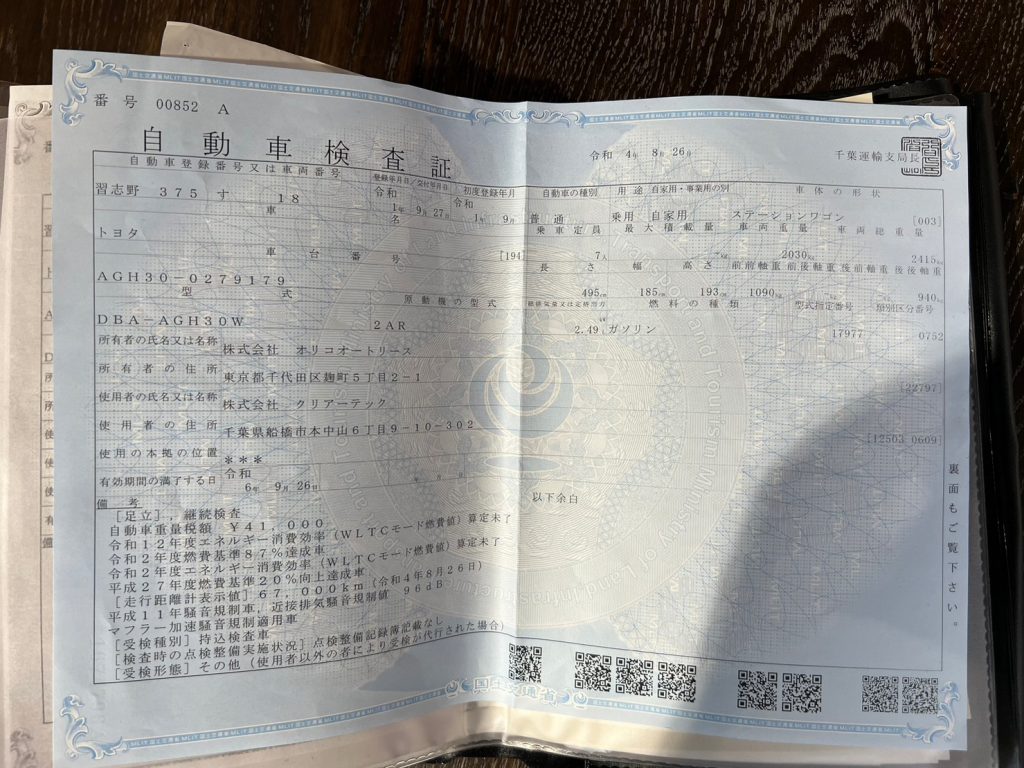 番号 00852 A
自動車検査証
令和 4年 8月 26日
千葉運輸支局長
自動車登録番号又は車両番号 登録年月日/交付年月日 初度登録年月 自動車の種別 用途 自家用・事業用の別 車体の形状
習志野 375 す 18 令和 1年 9月 27日 令和 1年 9月 普通 乗用 自家用 ステーションワゴン [003]
車名 乗車定員 最大積載量 車両重量 車両総重量
トヨタ [194] 7人 -kg 2030kg 2415kg
車台番号 長さ 幅 高さ 前前軸重 前後軸重 後前軸重 後後軸重
AGH30-0279179 495cm 185cm 193cm 1090kg -kg -kg 940kg
型式 原動機の型式 総排気量又は定格出力 燃料の種類 型式指定番号 類別区分番号
DBA-AGH30W 2AR 2.49 ガソリン 17977 0752
所有者の氏名又は名称 株式会社 オリコオートリース
所有者の住所 東京都千代田区麹町5丁目2-1 [22797]
使用者の氏名又は名称 株式会社 クリアーテック
使用者の住所 千葉県船橋市本中山6丁目9-10-302 [12503 0609]
使用の本拠の位置 ***
有効期間の満了する日 令和 6年 9月 26日 年 月 日
備考
以下余白
[足立], 継続検査
自動車重量税額 ¥41,000
令和12年度エネルギー消費効率(WLTCモード燃費値)算定未了
令和2年度燃費基準87%達成車
令和2年度エネルギー消費効率(WLTCモード燃費値)算定未了
平成27年度燃費基準20%向上達成車
[走行距離計表示値]67,000km(令和4年8月26日)
平成11年騒音規制車, 近接排気騒音規制値 96dB
マフラー加速騒音規制適用車
[受検種別]持込検査車
[検査時の点検整備実施状況]点検整備記録簿記載なし
[受検形態]その他(使用者以外の者により受検が代行された場合)
裏面もご覧下さい。